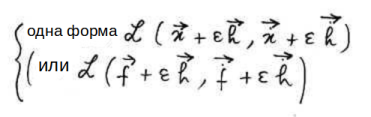 одна форма ℒ (x⃗ + εh⃗, ẋ⃗ + εḣ⃗)
(или ℒ (f⃗ + εh⃗, ḟ⃗ + εḣ⃗)